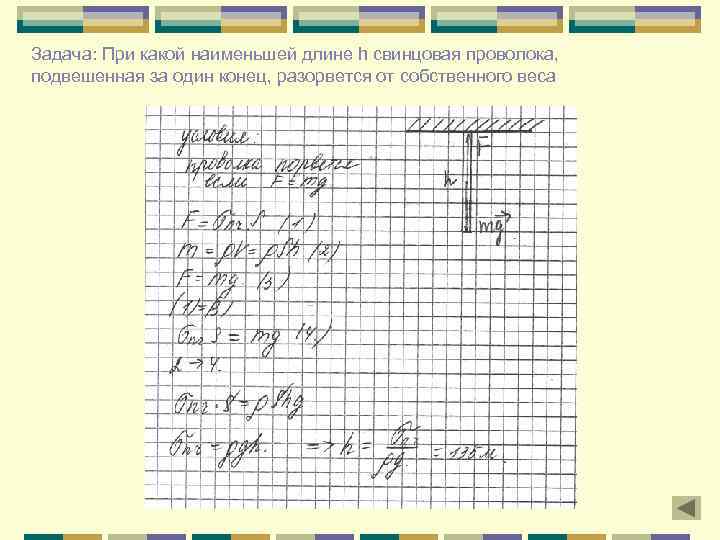 Задача: При какой наименьшей длине h свинцовая проволока,
подвешенная за один конец, разорвется от собственного веса
условия:
проволка порвется
если F = mg
F
h
mg
F = σпч S (1)
m = ρV = ρSh (2)
F = mg. (3)
(1)=(3)
σпч S = mg (4)
2 → 4.
σпч · S = ρShg
σпч = ρgh. => h = σпч/ρg = 135м.